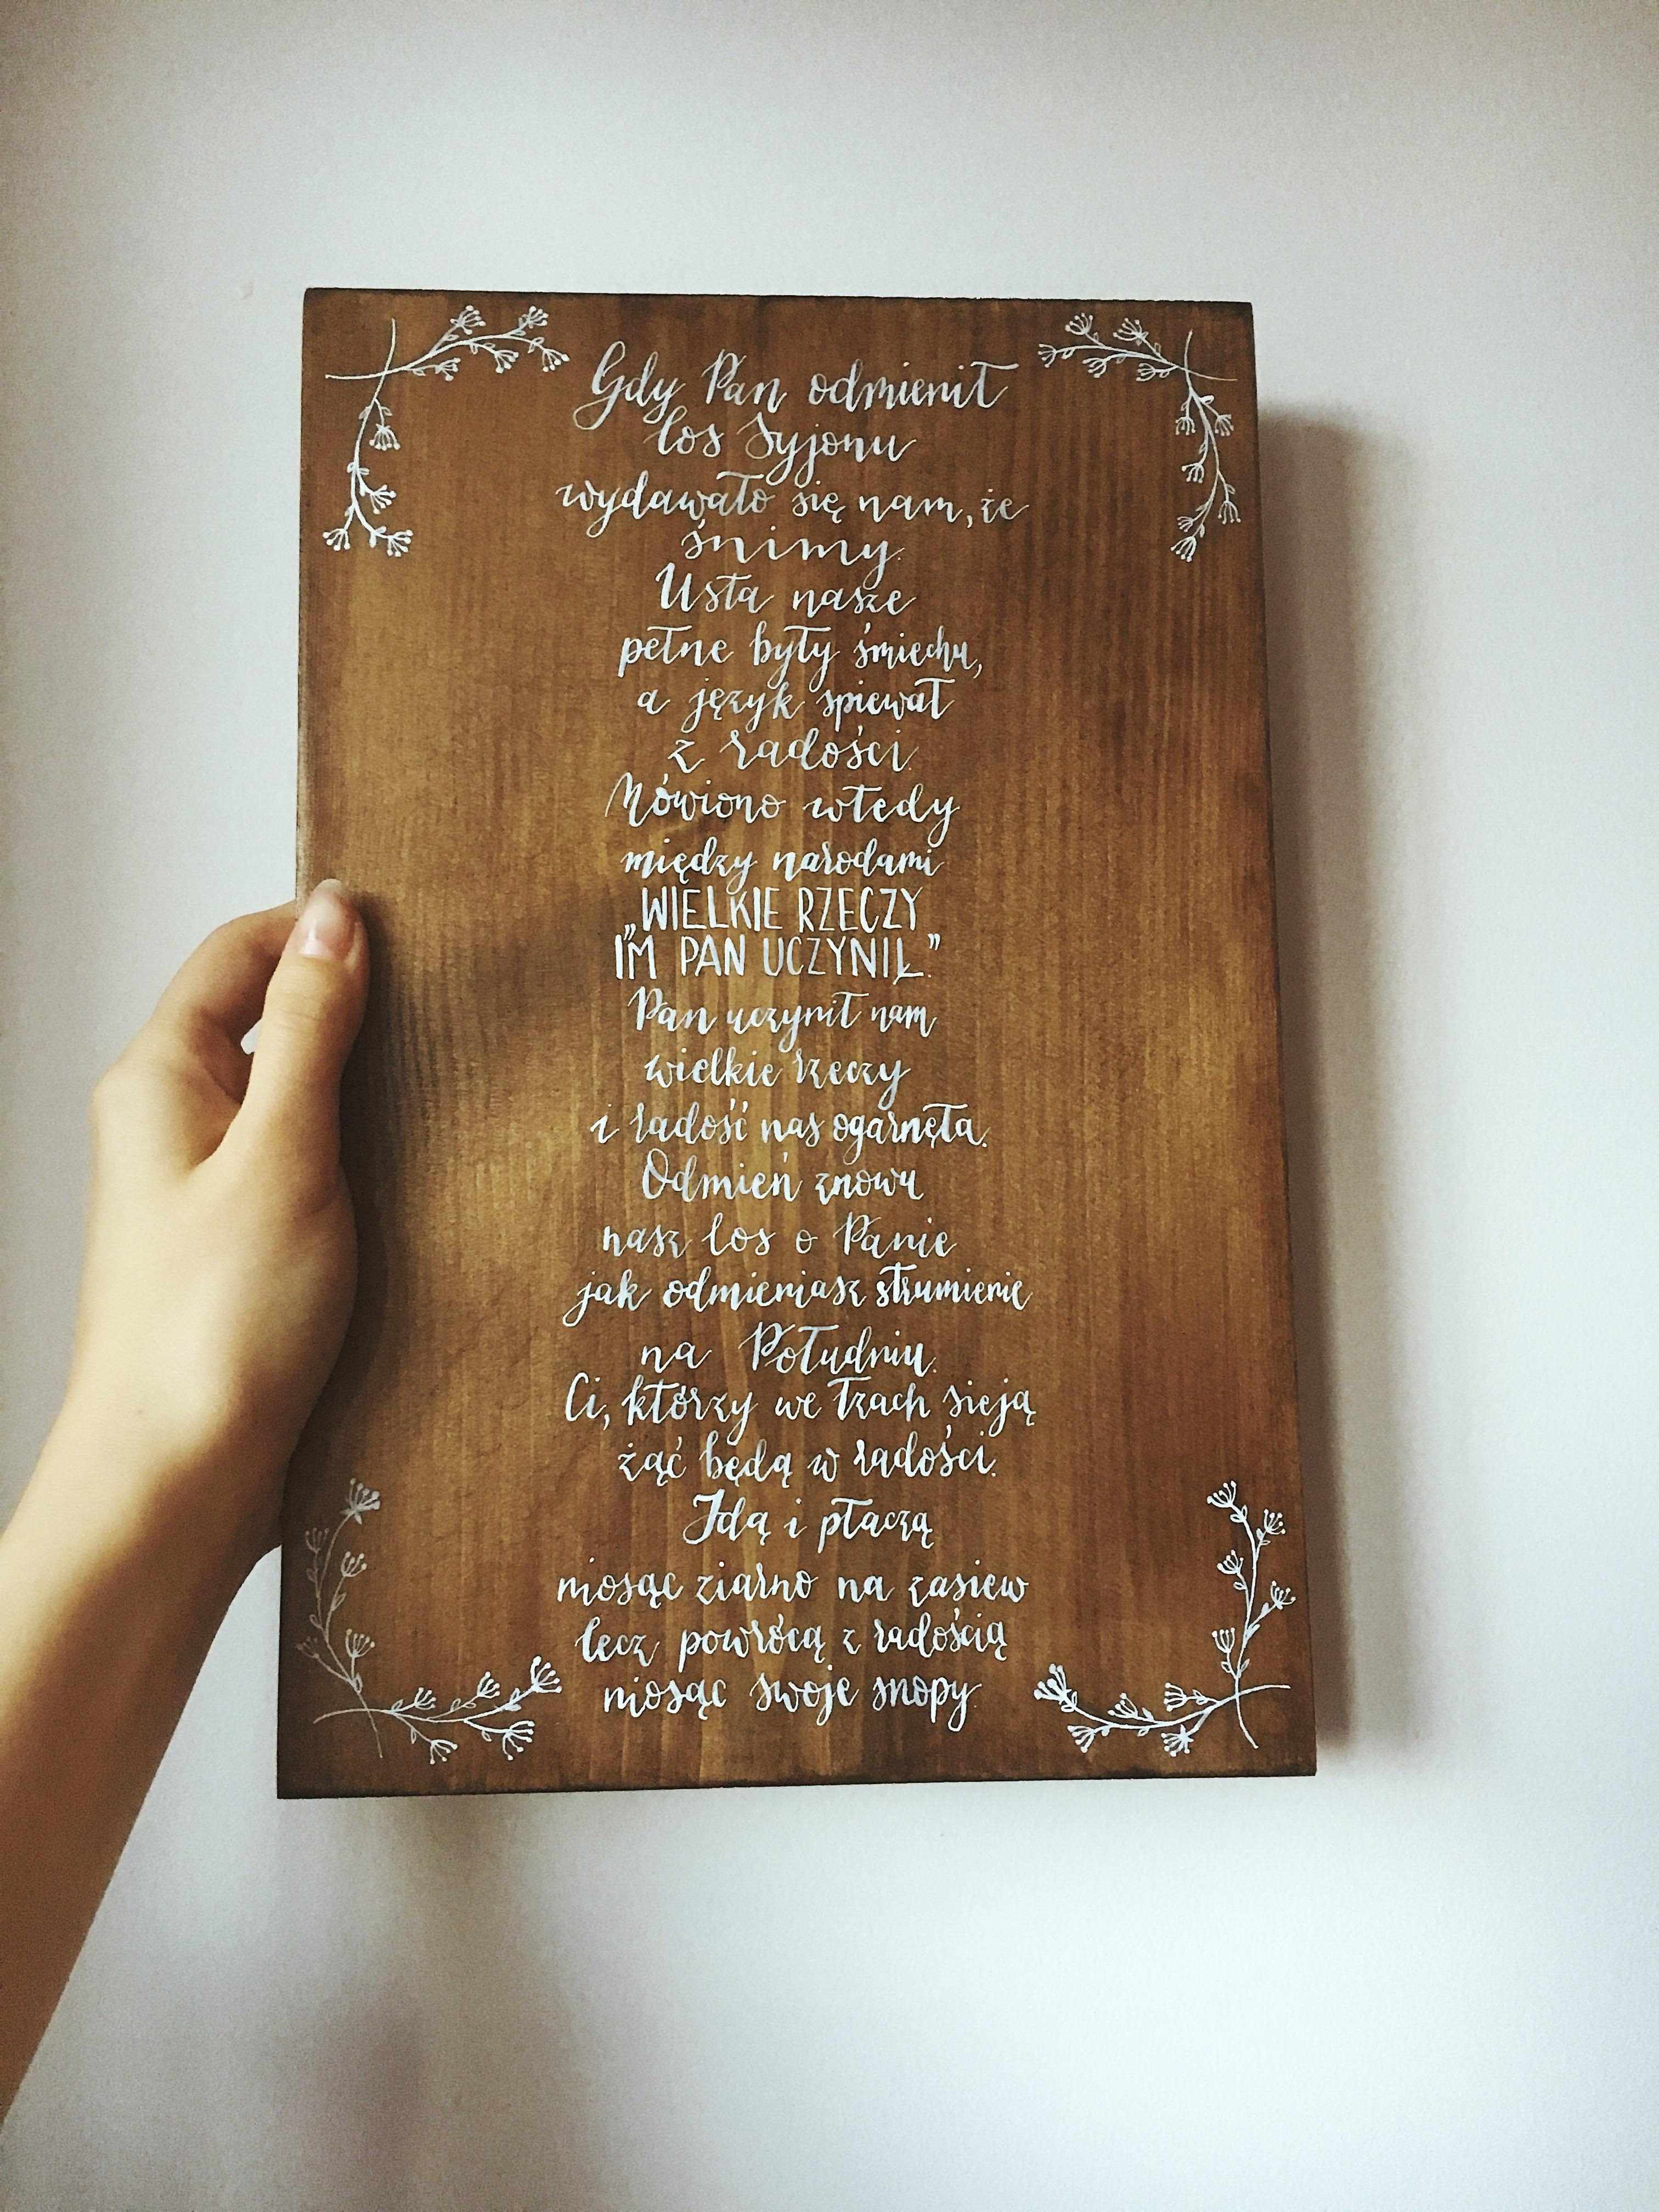 Gdy Pan odmienił
los Syjonu
wydawało się nam, że
śnimy.
Usta nasze
pełne były śmiechu,
a język śpiewał
z radości.
Mówiono wtedy
między narodami
„WIELKIE RZECZY
IM PAN UCZYNIŁ."
Pan uczynił nam
wielkie rzeczy
i radość nas ogarnęła.
Odmień znowu
nasz los o Panie
jak odmieniasz strumienie
na Południu.
Ci, którzy we łzach sieją
żąć będą w radości.
Idą i płaczą
niosąc ziarno na zasiew
lecz powrócą z radością
niosąc swoje snopy